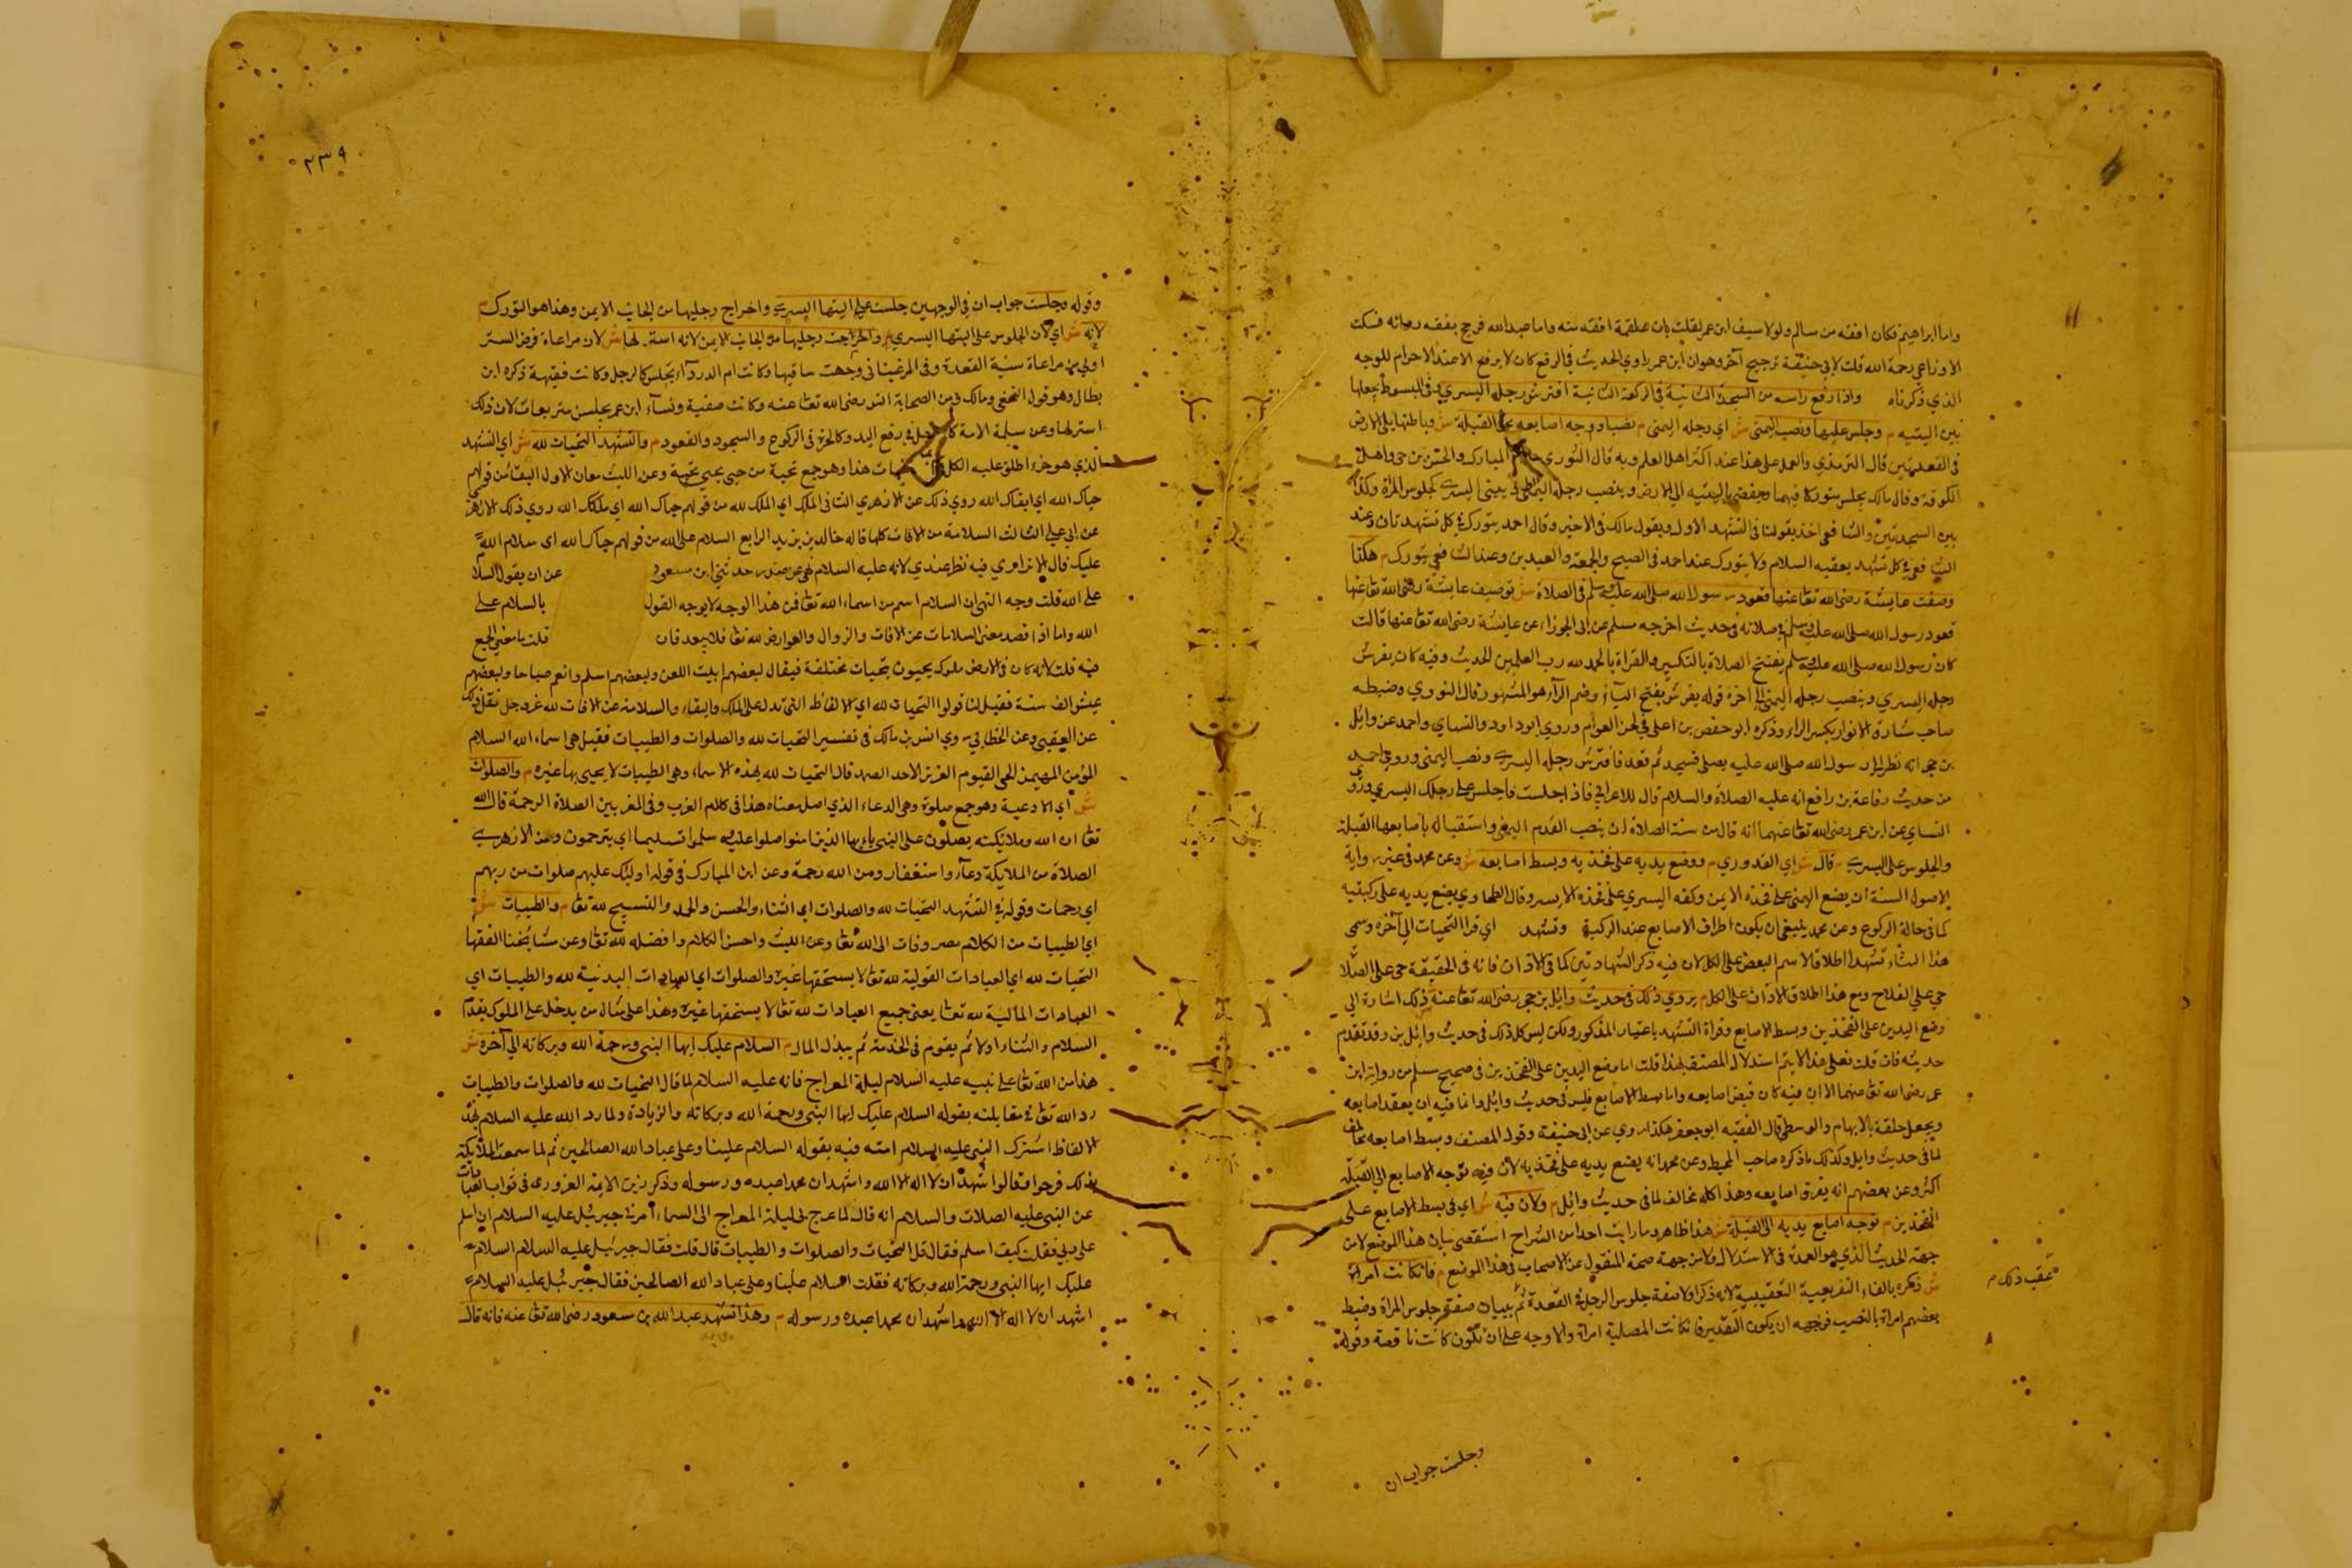 واما ابراهيم فكان افقه من سالم ولولا سبق ابن عمر لقلت بان علقمة افقه منه واما عبد الله فرجح بفقه رواته فسكت
الاوزاعي رحمة الله قلت لابي حنيفة ترجيح آخر وهو ان ابن عمر راوي الحديث في الرفع كان لا يرفع الا عند الاحرام للوجه
الذي ذكرناه واذا رفع راسه من السجدة الثانية في الركعة الثانية افترش رجله اليسري ش وفي المبسوط يجعلها
بين اليتيه م وجلس عليها ونصب اليمنى ش اي رجله اليمنى م نصبا ووجه اصابعه نحو القبلة ش وباطنها يلي الارض
في القعدتين قال الترمذي والعمل على هذا عند اكثر اهل العلم وبه قال الثوري وابن المبارك والحسن بن حي واهل
الكوفة وقال مالك يجلس متوركا فيهما ويفضي باليتيه الى الارض وينصب رجله اليمنى ويثنى اليسرى كجلوس المراة وكذا
بين السجدتين والشافعي اخذ بقولنا في التشهد الاول وبقول مالك في الاخير وقال احمد يتورك في كل تشهد ثان وعند
الشافعي في كل تشهد يعقبه السلام ولا يتورك عند احمد في الصبح والجمعة والعيدين وعند الشافعي يتورك م هكذا
وصفت عايشة رضى الله تعا عنها قعود رسول الله صلى الله عليه وسلم في الصلاة ش توصيف عايشة رضى الله تعا عنها
قعود رسول الله صلى الله عليه وسلم في صلاته في حديث اخرجه مسلم عن ابى الجوزاء عن عايشة رضى الله تعا عنها قالت
كان رسول الله صلى الله عليه وسلم يفتتح الصلاة بالتكبير والقراة بالحمد لله رب العلمين الحديث وفيه كان يفرش
رجله اليسري وينصب رجله اليمنى الى اخره قوله يفرش بفتح الياء وضم الراء هو المشهور قال النووي وضبطه
صاحب مشارق الانوار بكسر الراء وذكره ابو حفص بن اعلى في لحن العوام وروي ابو داود والنساي واحمد عن وايل
بن حجر انه نظر الى رسول الله صلى الله عليه يصلي فسجد ثم قعد فافترش رجله اليسرى ونصب اليمنى وروي احمد
من حديث رفاعة بن رافع انه عليه الصلاة والسلام قال للاعرابي فاذا جلست فاجلس على رجلك اليسري وروي
النساي عن ابن عمر رضى الله تعا عنهما انه قال من سنة الصلاة ان ينصب القدم اليمنى واستقباله باصابعها القبلة
والجلوس على اليسرى م قال ش اي القدوري م ووضع يديه على فخذيه وبسط اصابعه ش وعن محمد في غير رواية
الاصول السنة ان يضع اليمنى على فخذه الايمن وكفه اليسري على فخذه الايسر وقال الطحاوي يضع يديه على ركبتيه
كما في حالة الركوع وعن محمد ينبغي ان يكون اطراف الاصابع عند الركبة وتشهد اي قرا التحيات الى آخره وسمى
هذا الثناء تشهدا اطلاقا لاسم البعض على الكل لان فيه ذكر الشهادتين كما في الاذان فانه في الحقيقة حي على الصلا
حي على الفلاح ومع هذا اطلاق الاذان على الكل م يروي ذلك في حديث وايل بن حجر رضى الله تعا عنه ش ذلك اشارة الى
وضع اليدين على الفخذين وبسط الاصابع وقراة التشهد باعتبار المذكور ولكن ليس كل ذلك في حديث وايل بن وقد تقدم
حديثه فان قلت فعلى هذا لا يتم استدلال المصنف بهذا قلت اما وضع اليدين على الفخذين في صحيح مسلم من رواية ابن
عمر رضى الله تعا عنهما الا ان فيه كان قبض اصابعه واما بسط الاصابع فليس في حديث وايل وانما فيه ان يعقد اصابعه
ويجعل حلقة بالابهام والوسطى قال الفقيه ابو جعفر هكذا روي عن ابى حنيفة وقول المصنف وبسط اصابعه مخالف
لما في حديث وايل وكذلك ما ذكره صاحب المحيط وعن محمد انه يضع يديه على فخذيه لان فيه توجه الاصابع الى القبلة
اكثر وعن بعضهم انه يفرق اصابعه وهذا كله مخالف لما في حديث وايل م ولان فيه ش اي في بسط الاصابع على
الفخذين م توجه اصابع يديه الى القبلة ش هذا ظاهر وما رايت احدا من الشراح استقصى بيان هذا الموضع لا من
جهة الحديث الذي هو العمدة في الاستدلال ولا من جهة صحة المنقول عن الاصحاب في هذا الموضع م فان كانت امراة
ش ذكره بالفاء التفريعية التعقيبية لانه ذكر اولا صفة جلوس الرجل في القعدة ثم بيان صفة جلوس المراة وضبط
بعضهم امراة بالنصب فوجهه ان يكون التقدير فان كانت المصلية امراة والاوجه على ان تكون كانت ناقصة وقوله
عقب ذلك م
وجلست جواب ان
٢٣٩
وقوله وجلست جواب ان في الوجهين جلست على اليتها اليسرى واخراج رجليها من الجانب الايمن وهذا هو التورك م
لانه ش اي لان الجلوس على اليتها اليسري م واخرجت رجليها من الجانب الايمن لانه استر لها ش لان مراعاة فرض الستر
اولى من مراعاة سنية القعدة وفي المرغيناني وجهت ساقيها وكانت ام الدرداء تجلس كالرجل وكانت فقيهة ذكره ابن
بطال وهو قول النخعي ومالك ومن الصحابة انس رضى الله تعا عنه وكانت صفية ونساء ابن عمر يجلسن متربعات لان ذلك
استر لها وعن سلمة الامة كالرجل في رفع اليد وكالحرة في الركوع والسجود والقعود م والتشهد التحيات لله ش اي التشهد
الذي هو جزء اطلق عليه الكل التحيات هذا وهو جمع تحية من حيى يحيى تحية وعن الليث معان الاول البقاء من قولهم
حياك الله اي ابقاك الله روي ذلك عن الازهري الثاني الملك اي الملك لله من قولهم حياك الله اي ملكك الله روي ذلك الازهر
عن ابي علي الثالث السلامة من الافات كلها قاله خالد بن يزيد الرابع السلام على الله من قولهم حياك الله اى سلام الله
عليك قال الاتراري فيه نظر عندي لانه عليه السلام نهى عن حدثني ابن مسعود عن ان يقول السلا
على الله قلت وجه النهى ان السلام اسم من اسماء الله تعا فمن هذا الوجه لا يوجه القول بالسلام على
الله واما اذا قصد معنى السلامات عن الافات والزوال والعوارض لله تعا فلا يبعد فان قلت ما معنى الجمع
فيه قلت لانه كان في الارض ملوك يحيون بتحيات مختلفة فيقال لبعضهم ابيت اللعن ولبعضهم اسلم وانعم صباحا ولبعضهم
عش الف سنة فقيل لنا قولوا التحيات لله اي الالفاظ التي تدل على الملك والبقاء والسلامة عن الافات لله عز وجل نقل ذلك
عن القتبي وعن الخطابي روي انس بن مالك في تفسير التحيات لله والصلوات والطيبات فقيل هى اسماء الله السلام
المؤمن المهيمن الحي القيوم العزيز الاحد الصمد قال التحيات لله بهذه الاسماء وهى الطيبات لا يحيى بها غيره م والصلوات
ش اي الادعية وهو جمع صلوة وهى الدعاء الذي اصل معناه هذا في كلام العرب وفي المغرب بين الصلاة الرحمة قال الله
تعا ان الله وملايكته يصلون على النبي يا ايها الذين امنوا صلوا عليه وسلموا تسليما اي يترحمون وعند الازهرى
الصلاة من الملايكة دعاء واستغفار ومن الله رحمة وعن ابن المبارك في قوله اوليك عليهم صلوات من ربهم
اي رحمات وقوله في التشهد التحيات لله والصلوات اي الثناء والحسن والحمد والتسبيح لله تعا م والطيبات ش
اي الطيبات من الكلام مصروفات الى الله تعا وعن الليث واحسن الكلام وافضله لله تعا وعن مشايخنا الفقها
التحيات لله اي العبادات القولية لله تعا لا يستحقها غيره والصلوات اي العبادات البدنية لله والطيبات اي
العبادات المالية لله تعا يعنى جميع العبادات لله تعا لا يستحقها غيره وهذا على مثال من يدخل على الملوك يقدم
السلام والثناء اولا ثم يقوم في الخدمة ثم يبذل المال م السلام عليك ايها النبى ورحمة الله وبركاته الى آخره ش
هذا من الله تعا على نبيه عليه السلام ليلة المعراج فانه عليه السلام لما قال التحيات لله والصلوات والطيبات
رد الله تعا في مقابلته بقوله السلام عليك ايها النبي ورحمة الله وبركاته والزيادة ولما رد الله عليه السلام بهذه
الالفاظ اشترك النبي عليه السلام امته فيه بقوله السلام علينا وعلى عباد الله الصالحين ثم لما سمعت الملايكة
بذلك فرحوا وقالوا اشهد ان لا اله الا الله واشهد ان محمدا عبده ورسوله وذكر زين الايمة الغزوري في ثواب العبادات
عن النبي عليه الصلات والسلام انه قال لما عرج بي ليلة المعراج الى السماء امرني جبريئل عليه السلام ان اسلم
على ربي فقلت كيف اسلم فقال قل التحيات والصلوات والطيبات قال قلت فقال جبريئل عليه السلام السلام
عليك ايها النبي ورحمة الله وبركاته فقلت السلام علينا وعلى عباد الله الصالحين فقال جبريئل عليه السلام
اشهد ان لا اله الا الله واشهد ان محمدا عبده ورسوله م وهذا تشهد عبد الله بن مسعود رضى الله تعا عنه فانه قال